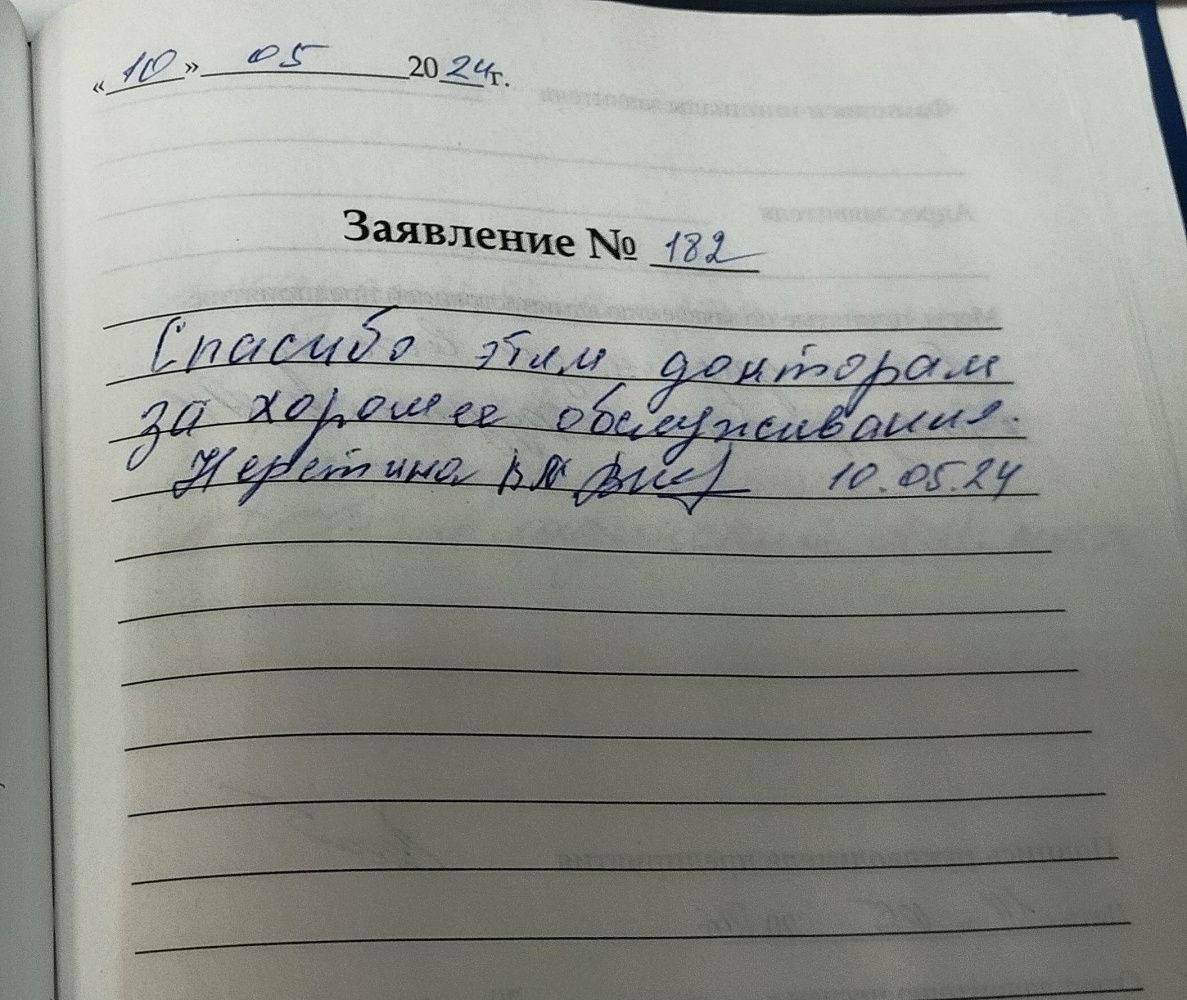 «10» 05 2024г.
Заявление № 182
Спасибо этим докторам
за хорошее обслуживания.
Неретина 10.05.24